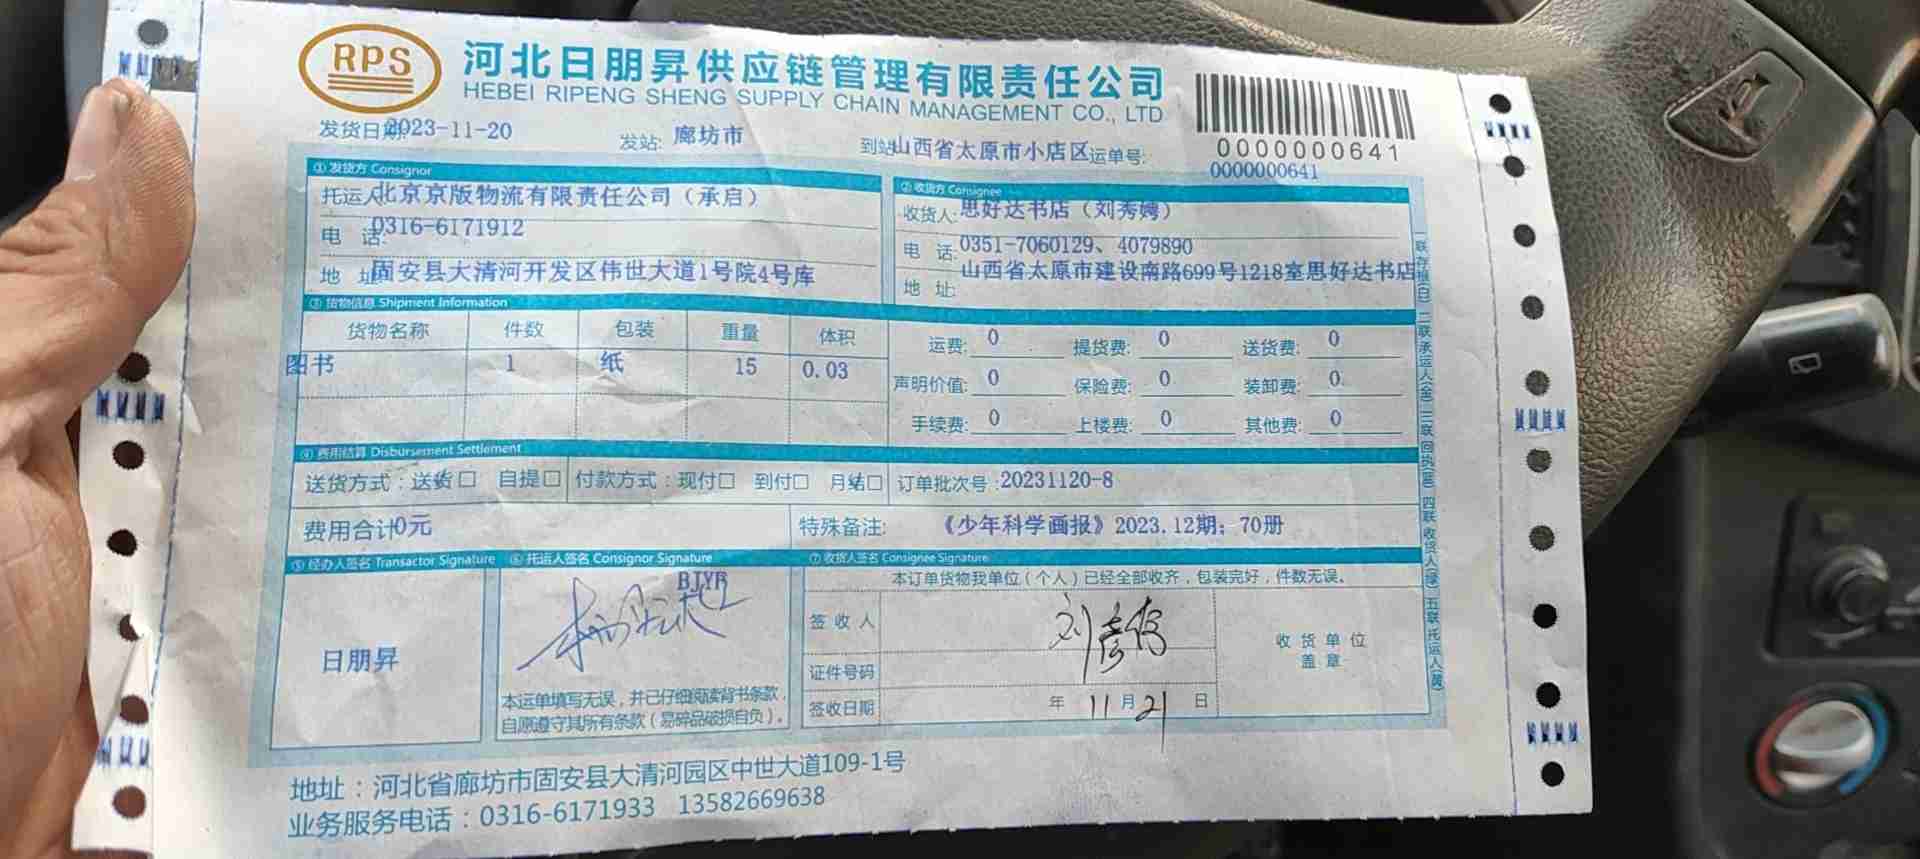 RPS 河北日朋昇供应链管理有限责任公司
HEBEI RIPENG SHENG SUPPLY CHAIN MANAGEMENT CO., LTD
0000000641
发货日期: 2023-11-20 发站: 廊坊市 到站: 山西省太原市小店区 运单号: 0000000641
① 发货方 Consignor
托运人 北京京版物流有限责任公司（承启）
电 话: 0316-6171912
地 址: 固安县大清河开发区伟世大道1号院4号库
② 收货方 Consignee
收货人: 思好达书店（刘秀娉）
电 话: 0351-7060129、4079890
地 址: 山西省太原市建设南路699号1218室思好达书店
③ 货物信息 Shipment Information
货物名称 件数 包装 重量 体积
图书 1 纸 15 0.03
运费: 0 提货费: 0 送货费: 0
声明价值: 0 保险费: 0 装卸费: 0
手续费: 0 上楼费: 0 其他费: 0
④ 费用结算 Disbursement Settlement
送货方式：送货□ 自提□ 付款方式：现付□ 到付□ 月结□ 订单批次号:20231120-8
费用合计0元 特殊备注: 《少年科学画报》2023.12期；70册
⑤ 经办人签名 Transactor Signature ⑥ 托运人签名 Consignor Signature ⑦ 收货人签名 Consignee Signature
日朋昇
BJYB
本运单填写无误，并已仔细阅读背书条款，
自愿遵守其所有条款（易碎品破损自负）。
本订单货物我单位（个人）已经全部收齐，包装完好，件数无误。
签 收 人
证件号码
签收日期 年 11 月 21 日
收 货 单 位
盖 章
一联存根(白) 二联承运人(金) 三联回执(蓝) 四联收货人(绿) 五联托运人(黄)
地址：河北省廊坊市固安县大清河园区中世大道109-1号
业务服务电话：0316-6171933 13582669638